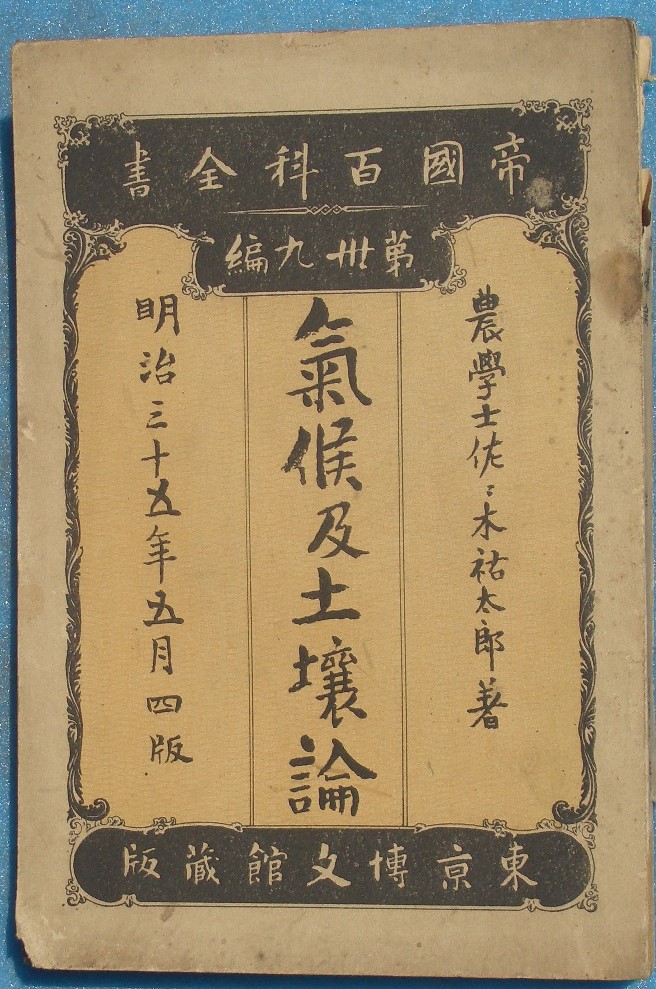 帝國百科全書
第卅九編
農學士佐々木祐太郎著
氣候及土壤論
明治三十五年五月四版
東京博文館藏版